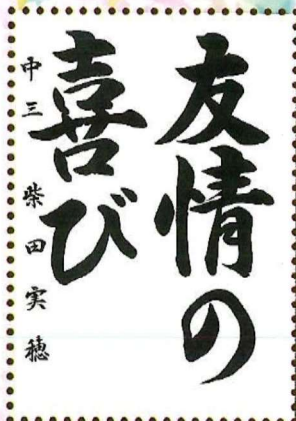 友情の
喜び
中三 柴田実穂